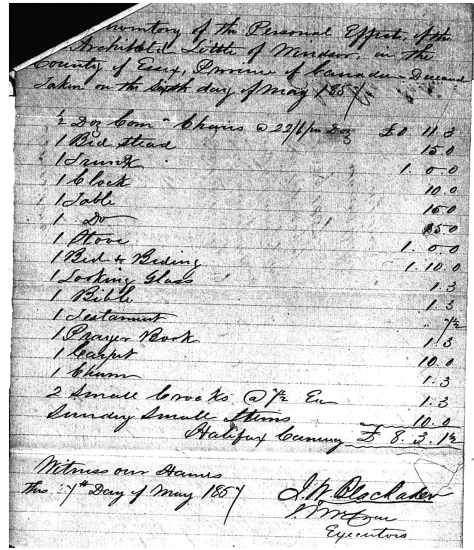 Inventory of the Personal Effects of the
Archibald Little of Windsor, in the
County of Essex, Province of Canada - Deceased
Taken on the Sixth day of May 1857
½ Doz Com" Chairs @ 22/6 pr Doz £0 11.3
1 Bed Stead 15.0
1 Trunk 1. 0.0
1 Clock 10.0
1 Table 15.0
1 Do
1 Stove 1. 0.0
1 Bed & Beding 1. 10.0
1 Looking Glass 1.3
1 Bible 1.3
1 Testament 7½
1 Prayer Book 1.3
1 Carpet 10.0
1 Churn 1.3
2 Small Crocks @ 7½ Ea 1.3
Sundry Small Items 10.0
Halifax Currency £ 8. 3. 1½
Witness our Hames
This 7th Day of May 1857
Executors